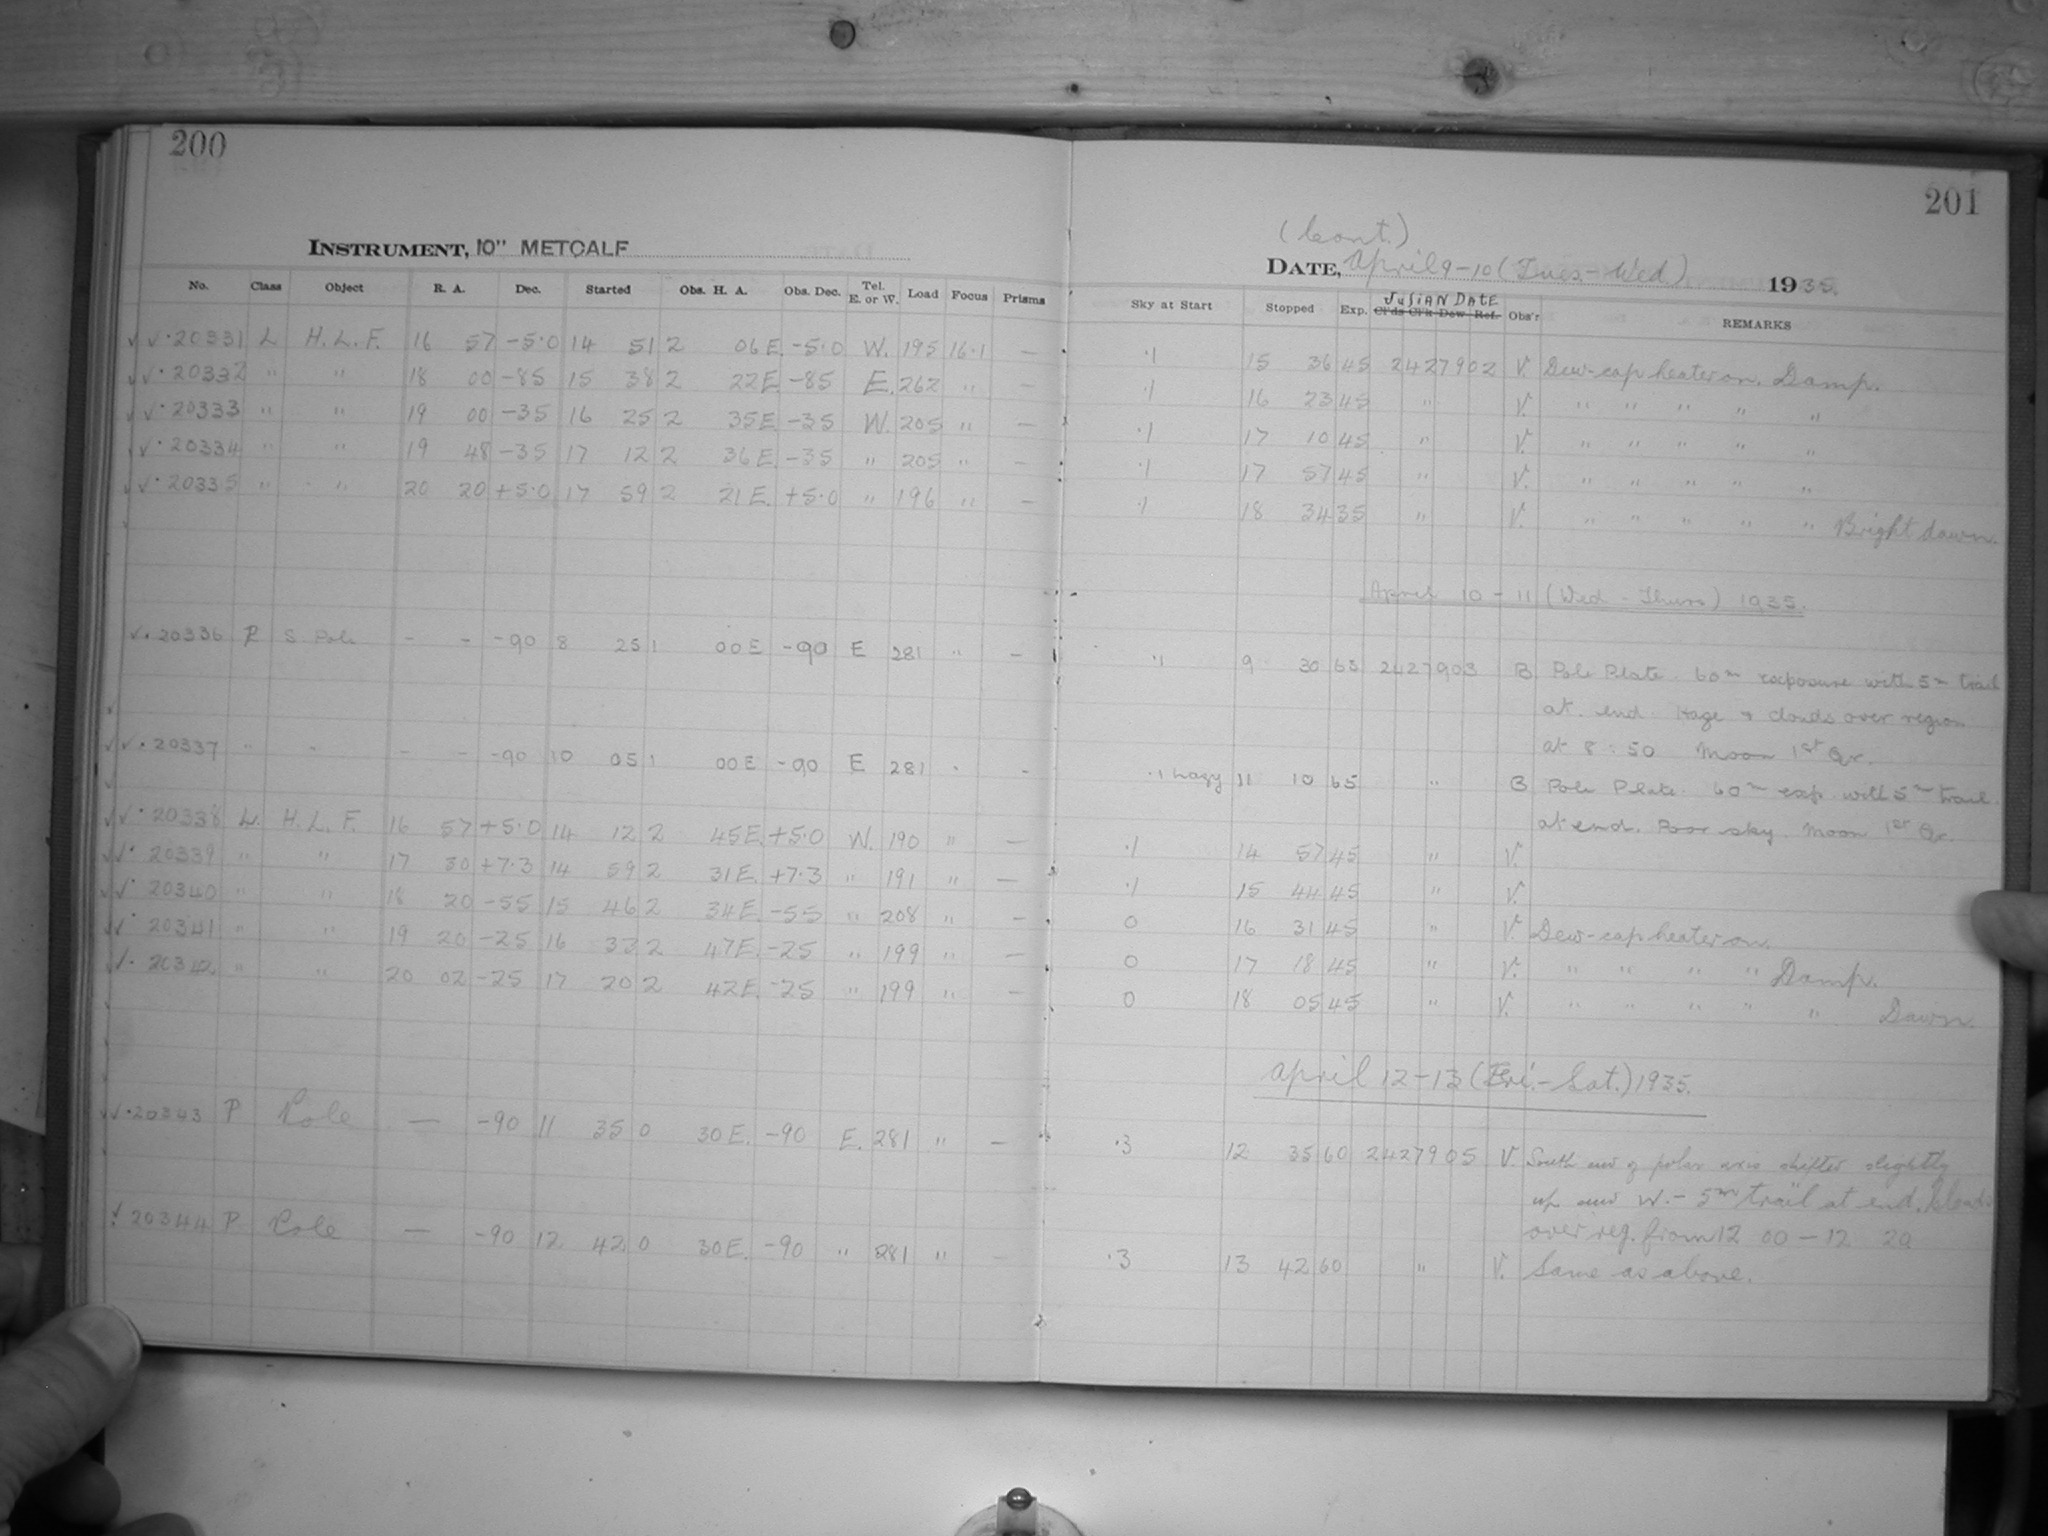 200
INSTRUMENT, 10" METCALF
No. Class Object R. A. Dec. Started Obs. H. A. Obs. Dec. Tel. E. or W. Load Focus Prisms
✓ ✓ · 20331 L H. L. F. 16 57 -5·0 14 51 2 06 E. -5·0 W. 195 16·1 —
✓ ✓ · 20332 " " 18 00 -85 15 38 2 22 E -85 E. 262 " —
✓ ✓ · 20333 " " 19 00 -35 16 25 2 35 E. -35 W. 205 " —
✓ ✓ · 20334 " " 19 48 -35 17 12 2 36 E. -35 " 205 " —
✓ ✓ · 20335 " " 20 20 +5·0 17 59 2 21 E. +5·0 " 196 " —
✓ · 20336 P S. Pole - - -90 8 25 1 00 E -90 E 281 " —
✓ ✓ · 20337 " " - - -90 10 05 1 00 E -90 E 281 " -
✓ ✓ · 20338 L. H. L. F. 16 57 +5·0 14 12 2 45 E. +5·0 W. 190 " —
✓ ✓ · 20339 " " 17 30 +7·3 14 59 2 31 E. +7·3 " 191 " —
✓ ✓ · 20340 " " 18 20 -55 15 46 2 34 E. -55 " 208 " —
✓ ✓ · 20341 " " 19 20 -25 16 33 2 47 E. -25 " 199 " —
✓ ✓ · 20342 " " 20 02 -25 17 20 2 42 E. -25 " 199 " —
✓ ✓ · 20343 P Pole — -90 11 35 0 30 E. -90 E. 281 " —
✓ 20344 P Pole — -90 12 42 0 30 E. -90 " 281 " —
201
(Cont.)
DATE, April 9-10 (Tues-Wed) 1935.
JULIAN DATE
Sky at Start Stopped Exp. Cl'ds Cl'k Dew Ref. Obs'r REMARKS
·1 15 36 45 2427902 V. Dew-cap heater on. Damp.
·1 16 23 45 " V. " " " " "
·1 17 10 45 " V. " " " " "
·1 17 57 45 " V. " " " " "
·1 18 34 35 " V. " " " " " Bright dawn.
April 10 - 11 (Wed - Thurs) 1935.
·1 9 30 65 2427903 B Pole Plate. 60m exposure with 5m trail
at end. Haze & clouds over region
at 8:50 Moon 1st Qr.
·1 hazy 11 10 65 " B Pole Plate. 60m exp. with 5m trail
at end. Poor sky. Moon 1st Qr.
·1 14 57 45 " V.
·1 15 44 45 " V.
0 16 31 45 " V. Dew-cap heater on.
0 17 18 45 " V. " " " " Damp.
0 18 05 45 " V. " " " " " Dawn.
April 12-13 (Fri.-Sat.) 1935.
·3 12 35 60 2427905 V. South end of polar axis shifted slightly
up and W. - 5m trail at end. Clouds
over reg. from 12 00 - 12 20
·3 13 42 60 " V. Same as above.